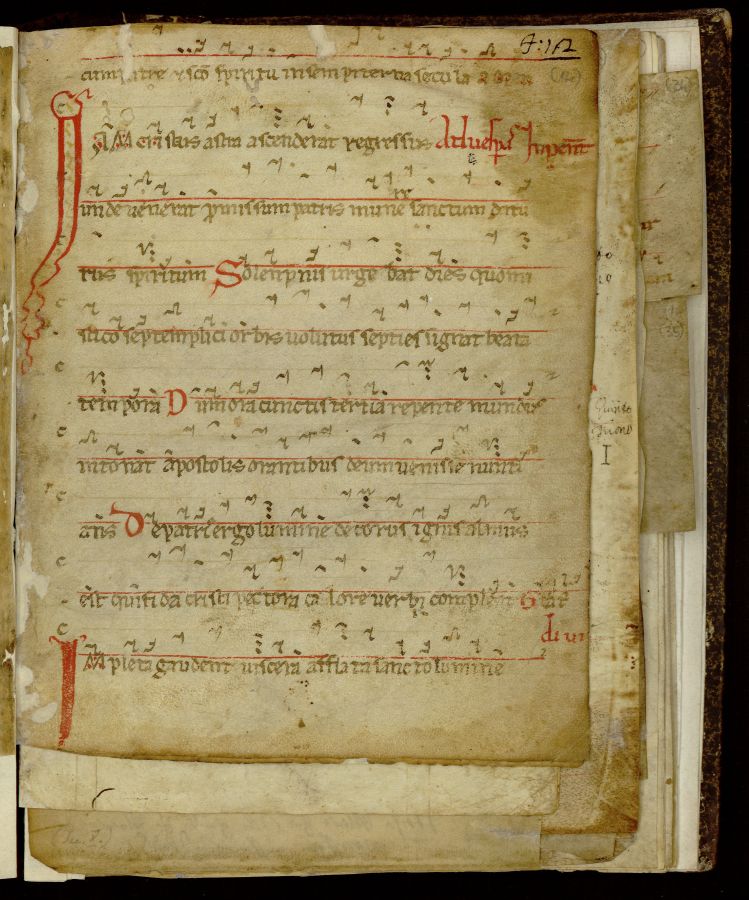 cum patre & sco spiritu in sempiterna secula amen
IAM cristus astra ascenderat regressus Ad vesp̄ In pent̄
unde venerat p̄missum patris mune sanctum datu
rus spiritum Solempnis urge bat dies quo mi
stico septemplici orbis volutus septies signat beata
tempora Dum ora cunctis tertia repente mundus
intonat apostolis orantibus deum venisse nunti
at Depatris ergo lumine decorus ignis almus
est qui fida cristi pectora calore verbi compleat
di vi
IMpleta gaudent viscera afflata sancto lumine